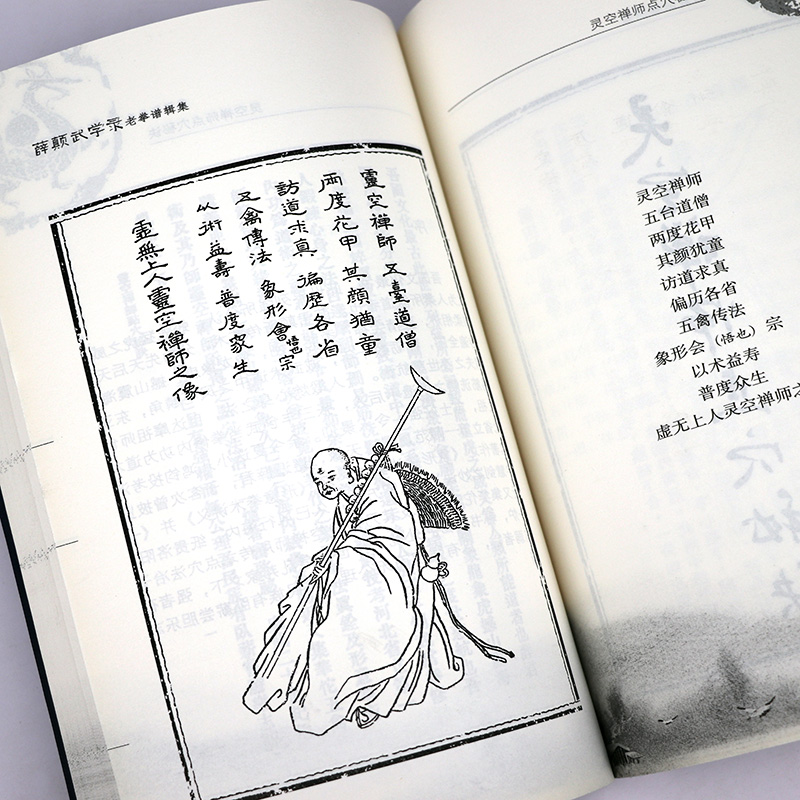 薛颠武学录老拳谱辑集
靈空禪師 五臺道僧
兩度花甲 其顔猶童
訪道求真 徧歷各省
五禽傳法 象形會悟也宗
以術益壽 普度衆生
虛無上人靈空禪師之像
灵空禅师点穴
灵空禅师
五台道僧
两度花甲
其颜犹童
访道求真
偏历各省
五禽传法
象形会（悟也）宗
以术益寿
普度众生
虚无上人灵空禅师之